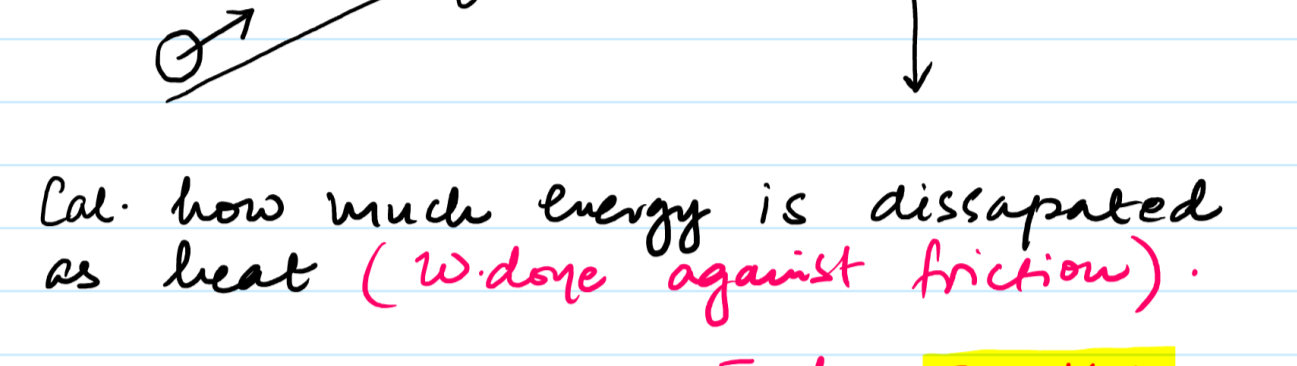 Cal. how much energy is dissapated
as heat (W.done against friction).